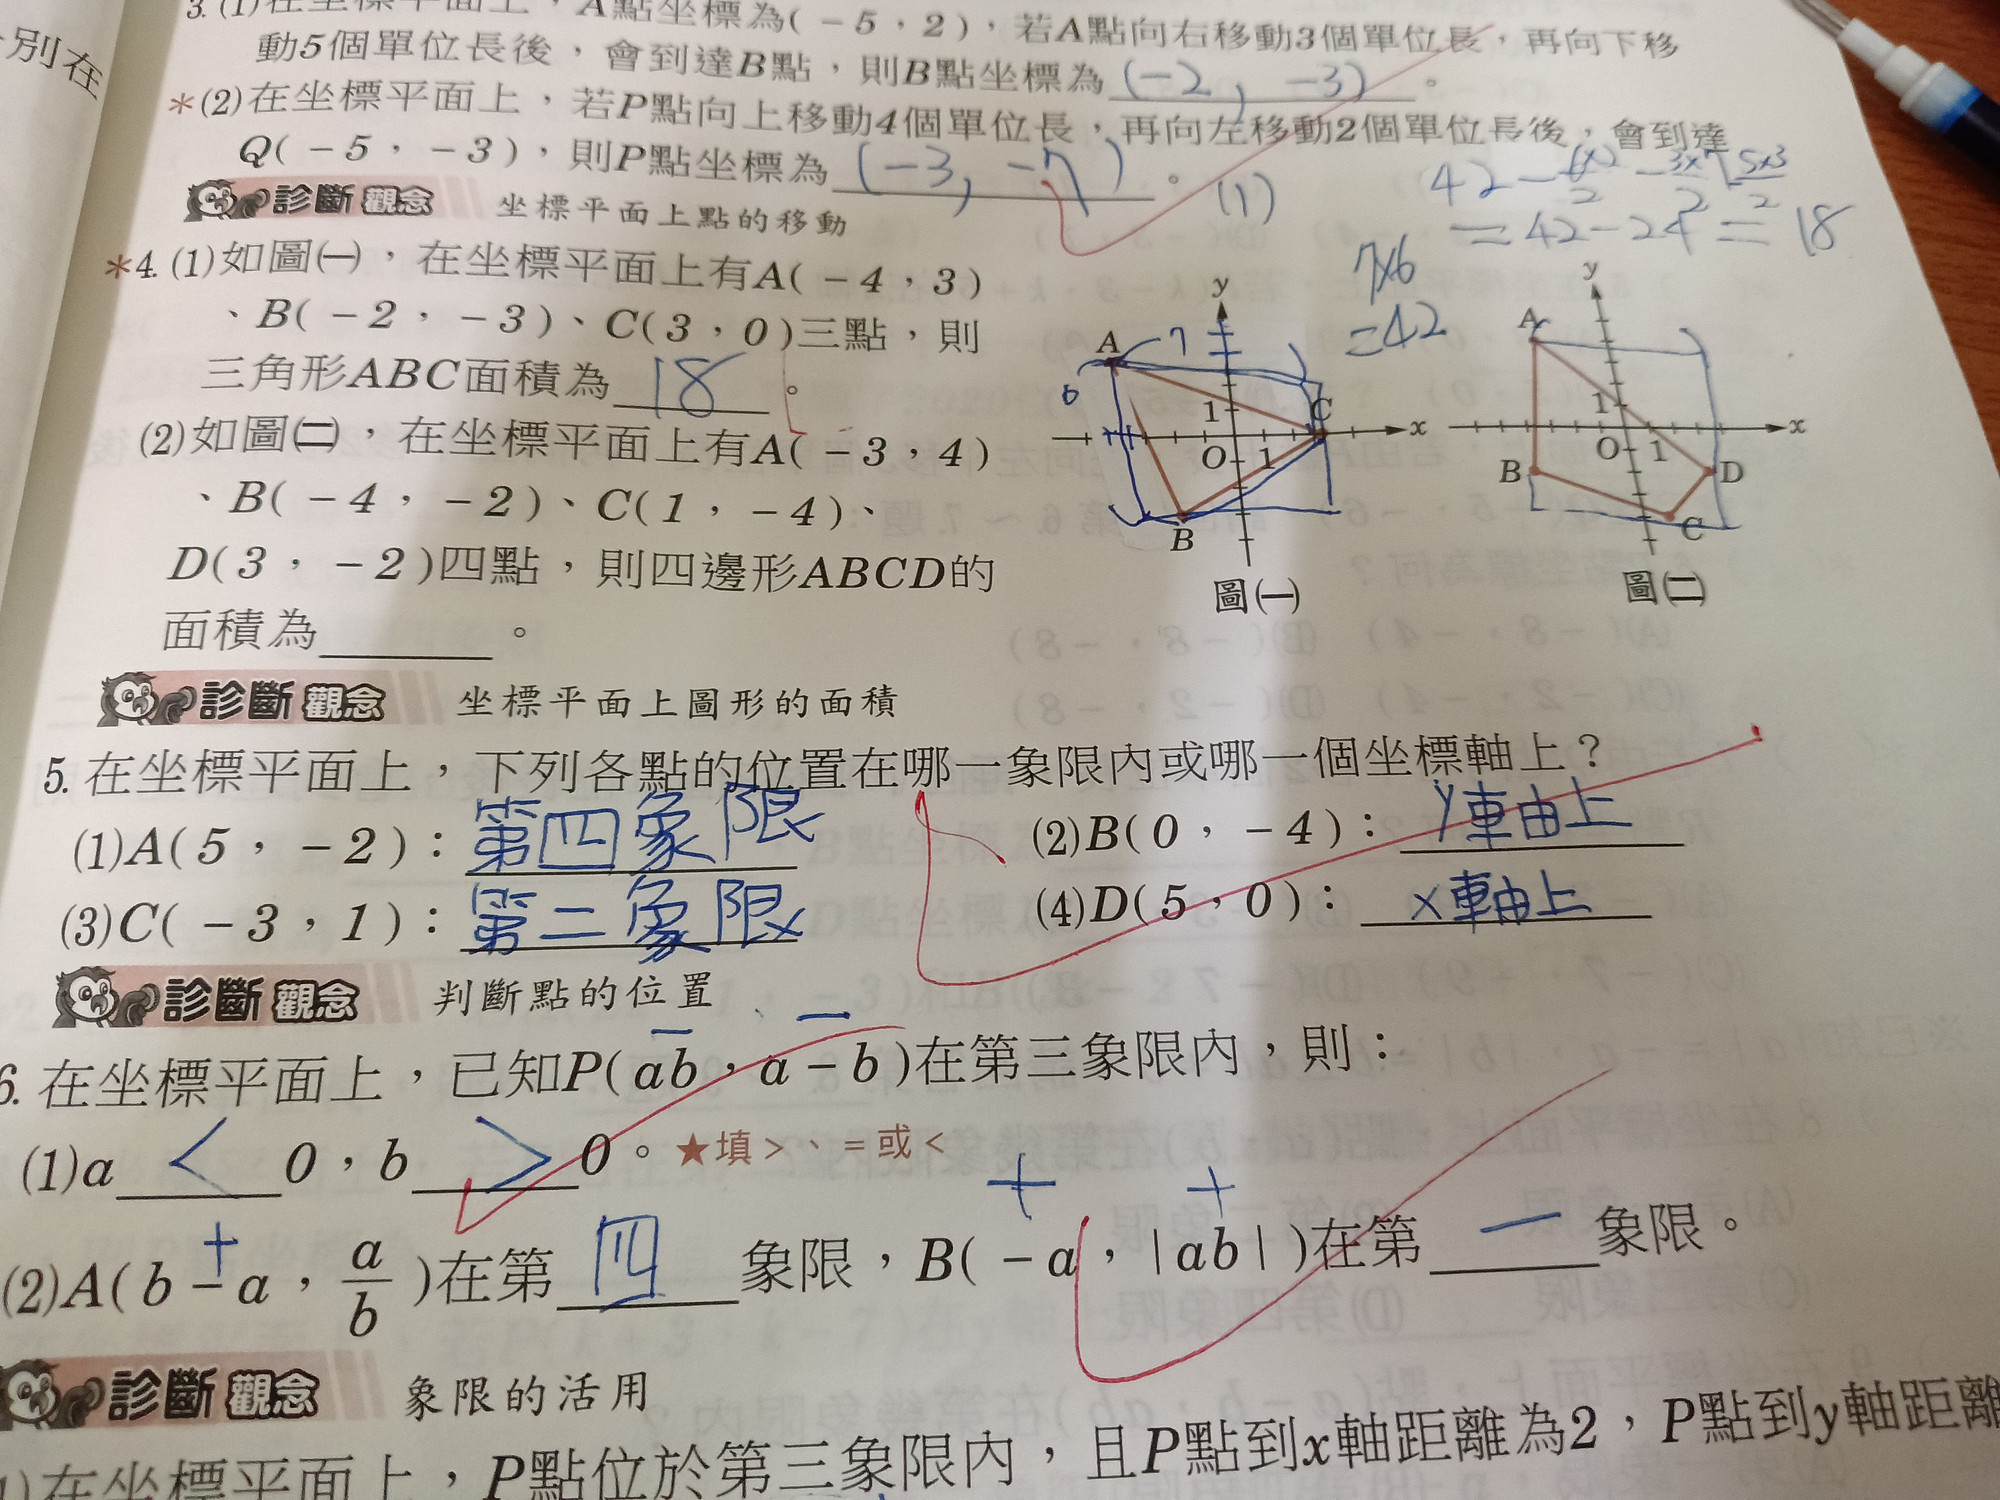 別在
3. (1)在坐標平面上，A點坐標為(－5，2)，若A點向右移動3個單位長，再向下移
動5個單位長後，會到達B點，則B點坐標為(－2，－3)。
＊(2)在坐標平面上，若P點向上移動4個單位長，再向左移動2個單位長後，會到達
Q(－5，－3)，則P點坐標為(－3，－7)。
診斷 觀念 坐標平面上點的移動
(1)
= 42 - 24 = 18
7×6
= 42
＊4. (1)如圖㈠，在坐標平面上有A(－4，3)
、B(－2，－3)、C(3，0)三點，則
三角形ABC面積為18。
(2)如圖㈡，在坐標平面上有A(－3，4)
、B(－4，－2)、C(1，－4)、
D(3，－2)四點，則四邊形ABCD的
面積為＿＿＿。
y
A
7
6
1
C
x
O
1
B
圖㈠
y
A
1
x
O
1
B
D
C
圖㈡
診斷 觀念 坐標平面上圖形的面積
5. 在坐標平面上，下列各點的位置在哪一象限內或哪一個坐標軸上？
(1)A(5，－2)：第四象限 (2)B(0，－4)：y軸上
(3)C(－3，1)：第二象限 (4)D(5，0)：x軸上
診斷 觀念 判斷點的位置
－ －
6. 在坐標平面上，已知P(ab，a－b)在第三象限內，則：
(1)a＜0，b＞0。★填＞、＝或＜
+ + +
(2)A(b－a，a/b)在第四象限，B(－a，|ab|)在第一象限。
診斷 觀念 象限的活用
1)在坐標平面上，P點位於第三象限內，且P點到x軸距離為2，P點到y軸距離